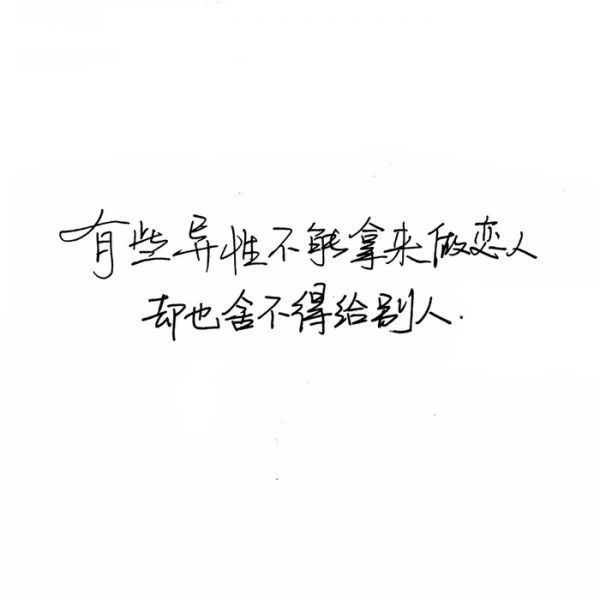 有些异性不能拿来做恋人
却也舍不得给别人.